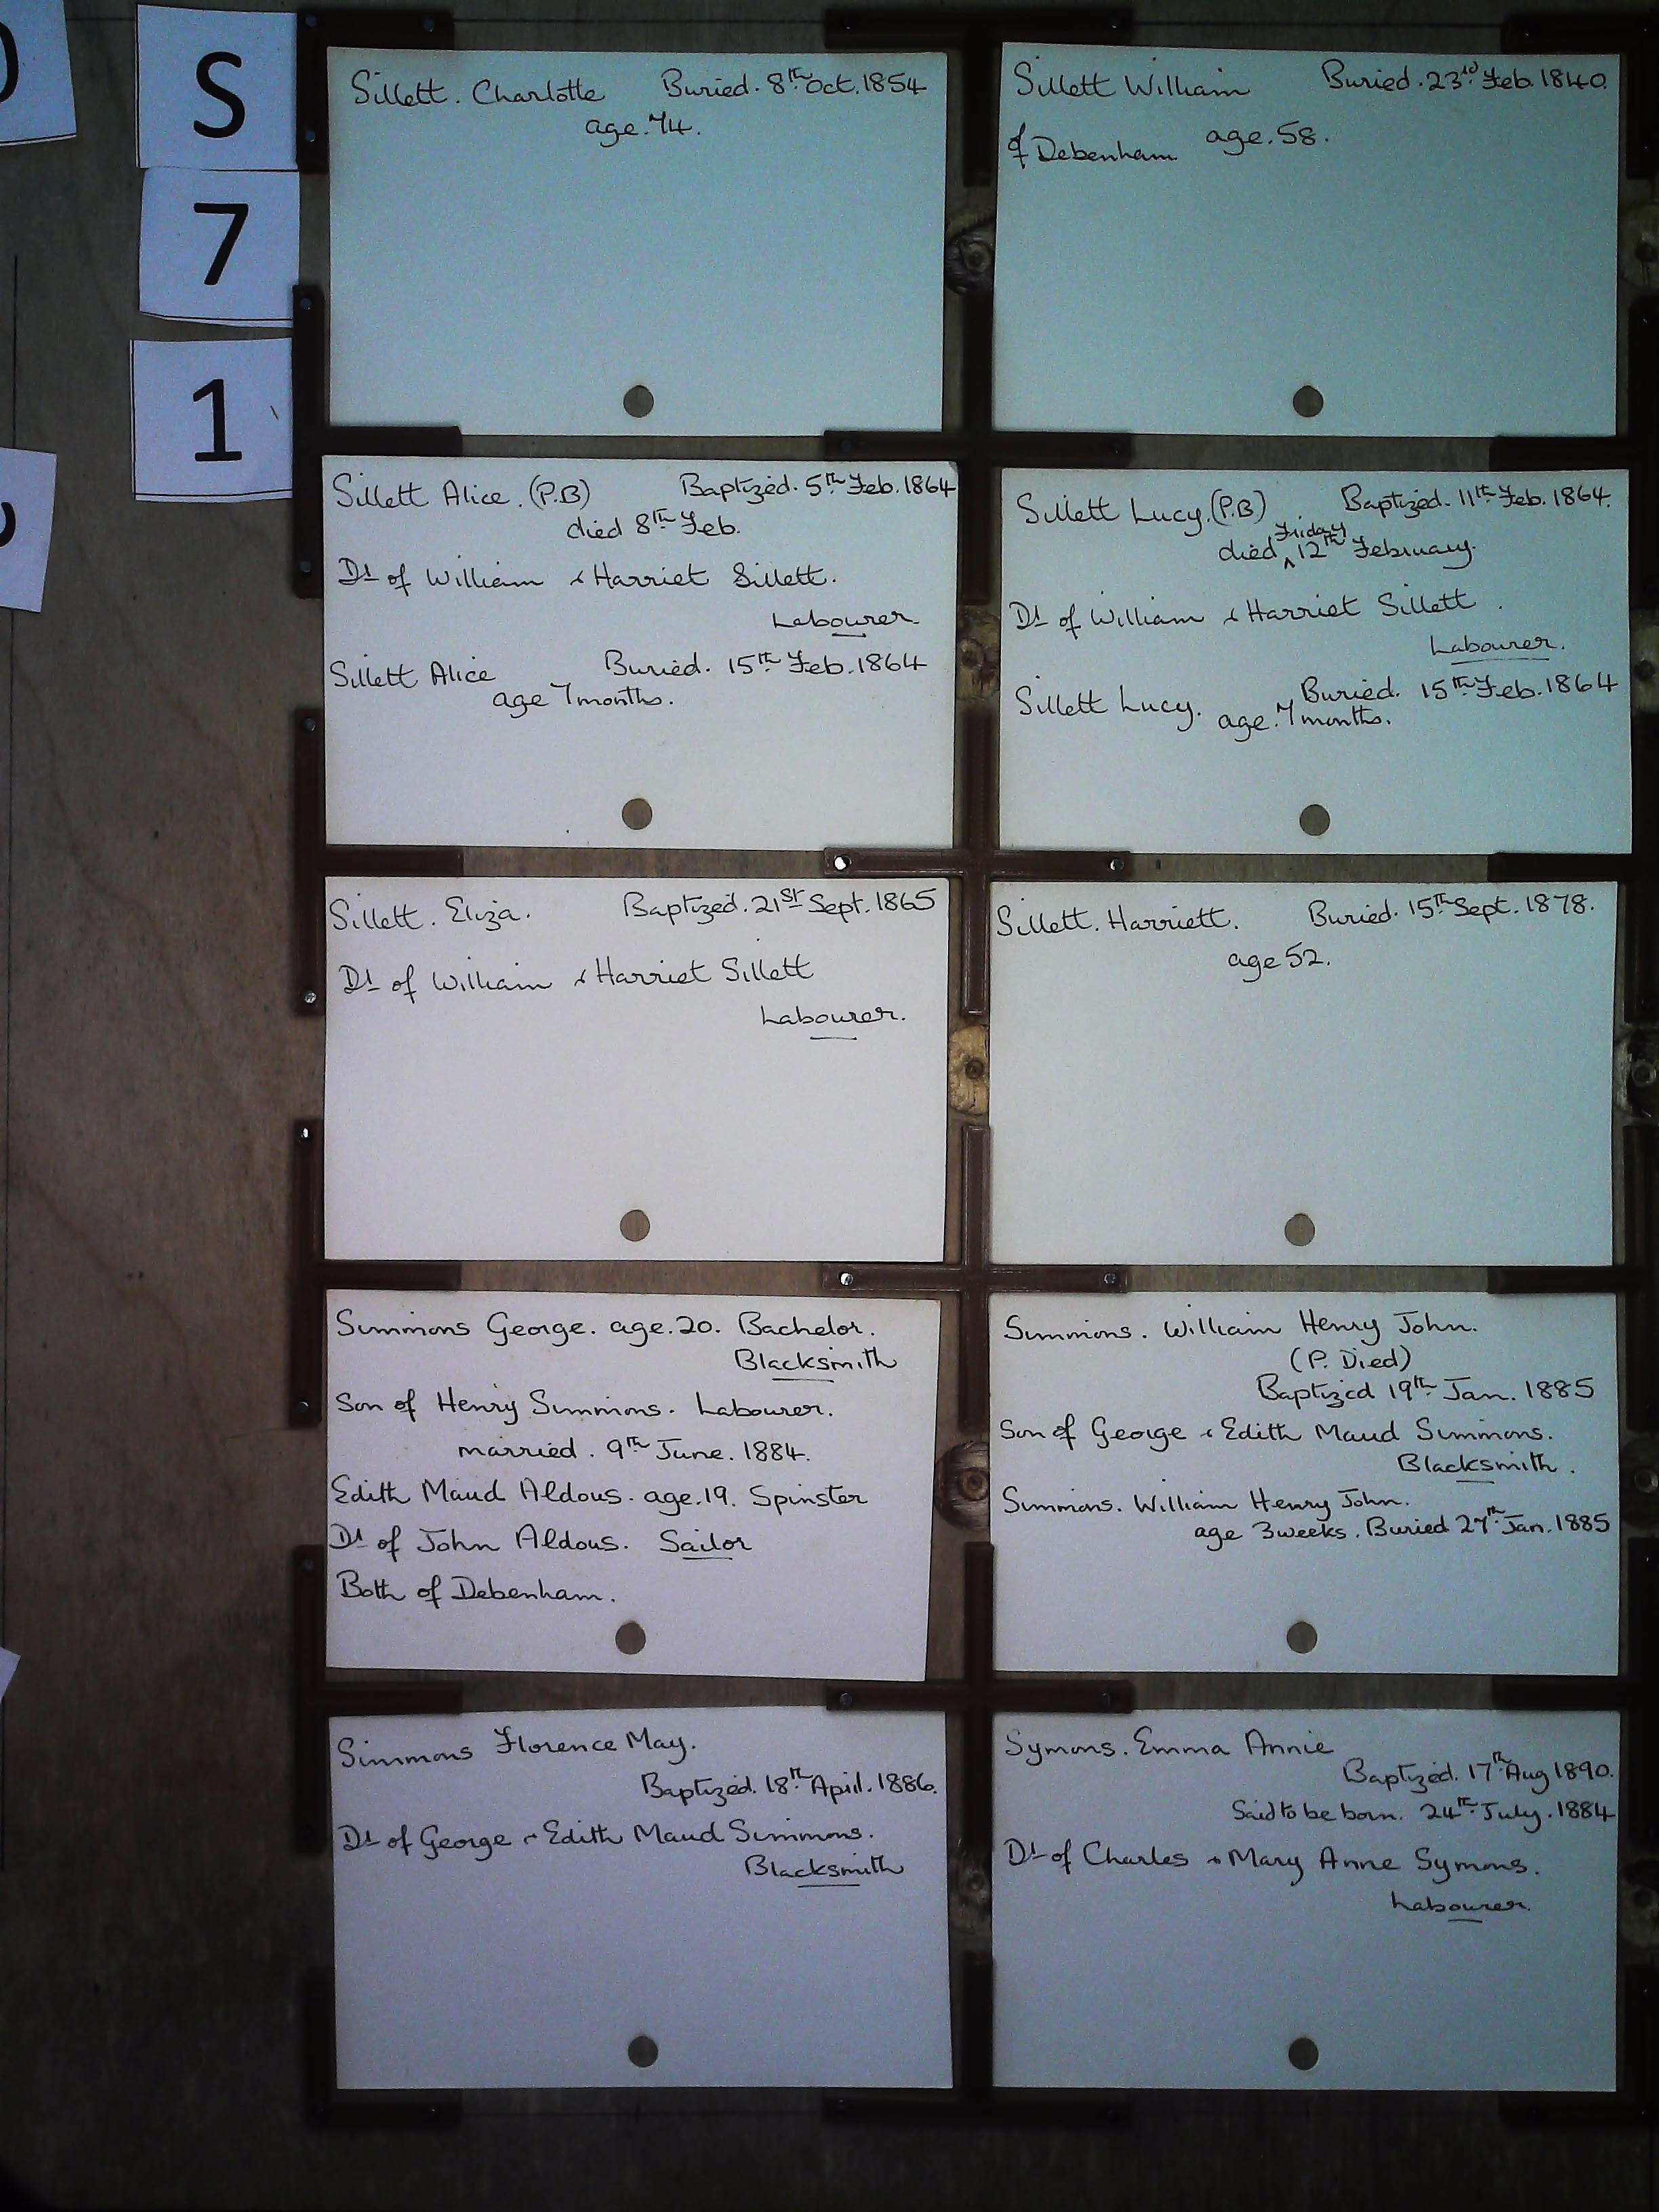 S
7
1
Sillett. Charlotte Buried. 8th Oct. 1854
age. 74.
Sillett William Buried. 23rd Feb. 1840.
of Debenham age. 58.
Sillett Alice. (P.B) Baptized. 5th Feb. 1864
died 8th Feb.
Dt of William & Harriet Sillett.
Labourer
Sillett Alice Buried. 15th Feb. 1864
age 7 months.
Sillett Lucy. (P.B) Baptized. 11th Feb. 1864.
died Friday 12th February.
Dt of William & Harriet Sillett.
Labourer.
Sillett Lucy. Buried. 15th Feb. 1864
age. 7 months.
Sillett. Eliza. Baptized. 21st Sept. 1865
Dt of William & Harriet Sillett
Labourer.
Sillett. Harriett. Buried. 15th Sept. 1878.
age 52.
Simmons George. age. 20. Bachelor.
Blacksmith
Son of Henry Simmons. Labourer.
married. 9th June. 1884.
Edith Maud Aldous. age. 19. Spinster
Dt of John Aldous. Sailor
Both of Debenham.
Simmons. William Henry John.
(P. Died)
Baptized 19th Jan. 1885
Son of George & Edith Maud Simmons.
Blacksmith.
Simmons. William Henry John.
age 3 weeks. Buried 27th Jan. 1885
Simmons Florence May.
Baptized. 18th April. 1886.
Dt of George & Edith Maud Simmons.
Blacksmith
Symons. Emma Annie
Baptized. 17th Aug 1890.
Said to be born. 24th July. 1884
Dt of Charles & Mary Anne Symons.
Labourer.